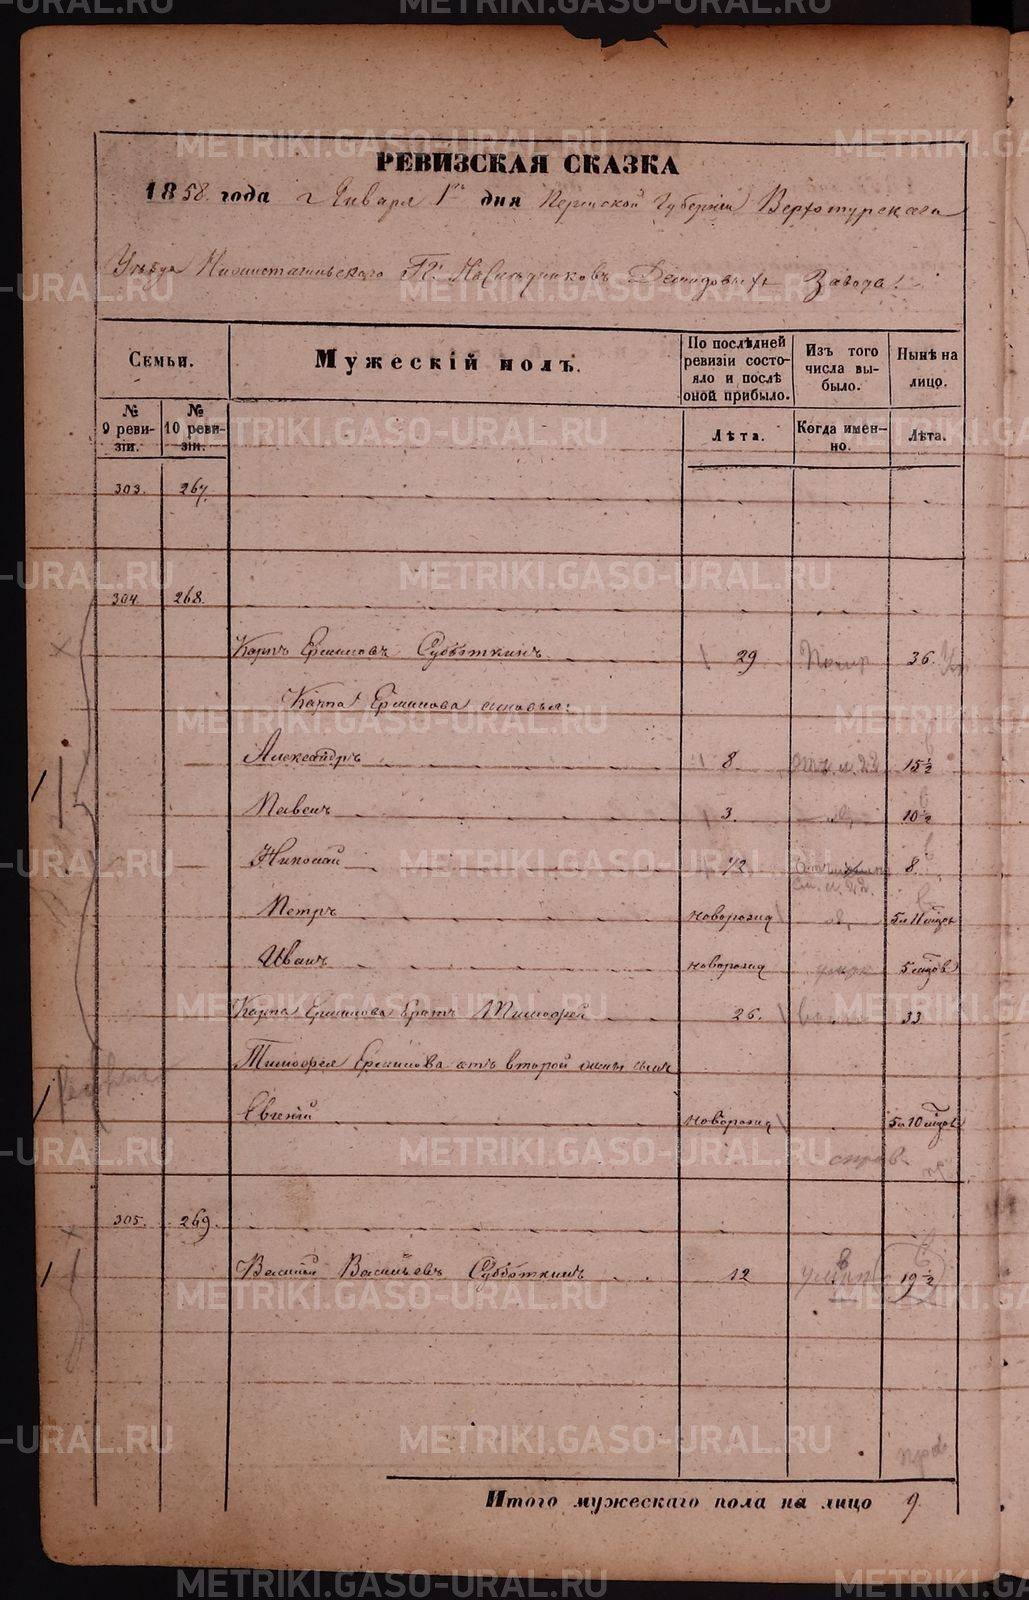 РЕВИЗСКАЯ СКАЗКА
1858 года Января 1 дня Пермской Губернии Верхотурскаго
Уѣзда Нижнетагильскаго Гг. Наслѣдниковъ Демидовыхъ Завода.
Семьи.
Мужескій полъ.
По послѣдней ревизіи состояло и послѣ оной прибыло.
Изъ того числа выбыло.
Нынѣ на лицо.
№ 9 ревизіи.
№ 10 ревизіи.
Лѣта.
Когда именно.
Лѣта.
303. 267.
304. 268.
Карпъ Ерминовъ Субботкинъ 29 36.
Карпа Ерминова сыновья:
Александръ 8 15 1/2
Павелъ 3. 10 1/2
Николай 1/2 8
Петръ новорожд 5 л 11 мцов
Иванъ новорожд 5 мцов
Карпа Ерминова братъ Тимофей 26. 33
Тимофея Ерминова отъ второй жены сынъ
Евгений новорожд 5 л 10 мцов
справ.
305. 269.
Василій Васильевъ Субботкинъ 12 19 1/2
Итого мужескаго пола на лицо 9.
METRIKI.GASO-URAL.RU